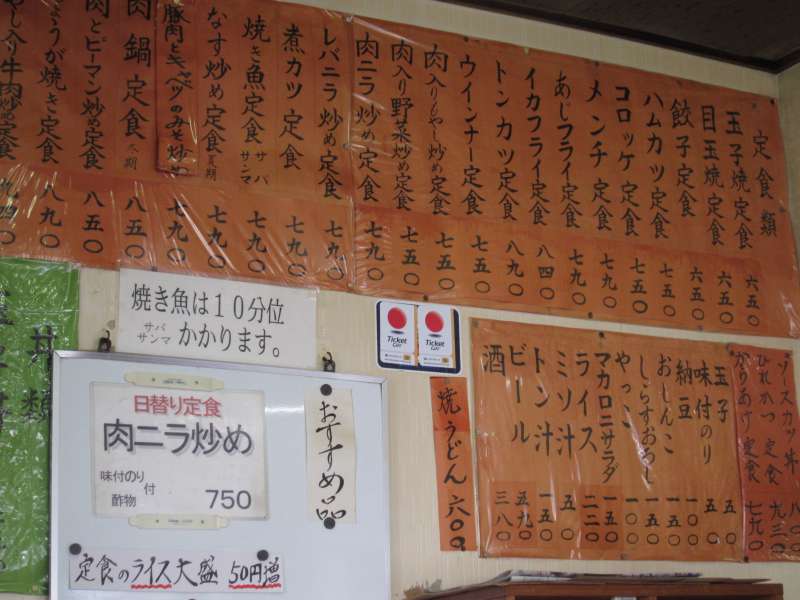 定食類
玉子焼定食 六五〇
目玉焼定食 六五〇
餃子定食 六五〇
ハムカツ定食 七五〇
コロッケ定食 七五〇
メンチ定食 七九〇
あじフライ定食 七九〇
イカフライ定食 八四〇
トンカツ定食 八九〇
ウインナー定食 七五〇
肉入りもやし炒め定食 七五〇
肉入り野菜炒め定食 七五〇
肉ニラ炒め定食 七九〇
レバニラ炒め定食 七九〇
煮カツ定食 七九〇
焼き魚定食 サバ サンマ 七九〇
なす炒め定食 夏期 七九〇
豚肉とキャベツのみそ炒め 七九〇
肉鍋定食 冬期 八五〇
肉とピーマン炒め定食 八五〇
しょうが焼き定食 八九〇
やし入り牛肉炒め定食 九四〇
丼類
焼き魚は10分位
サバ
サンマ かかります。
Ticket
Ticket
日替り定食
肉ニラ炒め
味付のり
付
酢物
750
おすすめ品
定食のライス大盛 50円増
焼うどん 六〇〇
ソースカツ丼
ひれかつ定食 九三〇
からあげ定食 七九〇
玉子 五〇
味付のり 五〇
納豆 一〇〇
おしんこ 一五〇
しらすおろし 一五〇
やっこ 一〇〇
マカロニサラダ 一五〇
ライス 二二〇
ミソ汁 五〇
トン汁 一五〇
ビール 五九〇
酒 三八〇